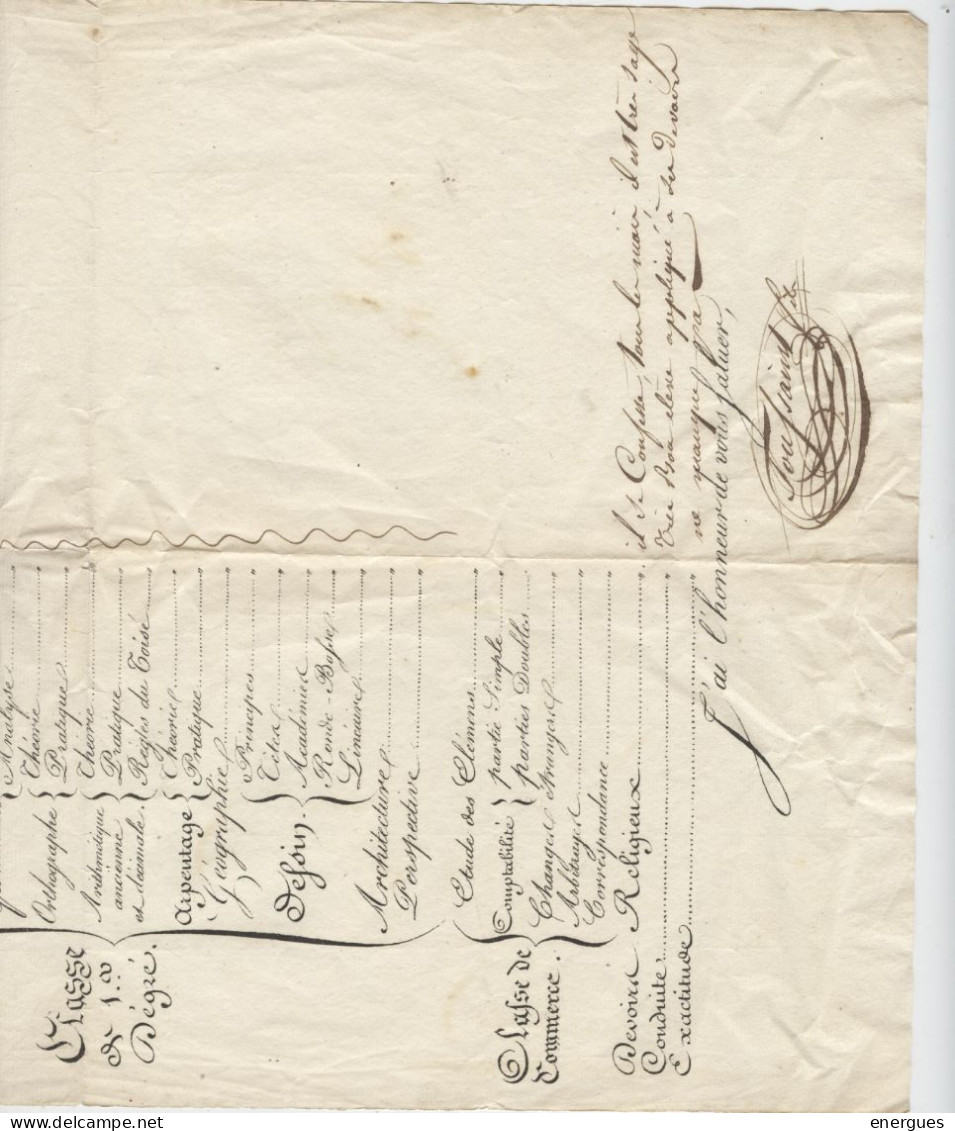 Classe
de 1.er
Dégré.
Analyse
Orthographe { Théorie
Pratique
Arithmétique
ancienne
et décimale. { Théorie
Pratique
Règles du Toisé
Arpentage { Théorie
Pratique
Géographie
Dessin. { Principes
Têtes
Académies
Ronde-Bosse
Linéaires
Architecture
Perspective
Classe de
Commerce. { Etude des Elémens
Comptabilité { partie Simple
parties Doubles
Changes Etrangers
Arbitrages
Correspondance
Devoirs Religieux
Conduite il se Confesse tous les mois il est très sage
Exactitude très bon élève appliqué à ses devoirs
ne manque pas
J'ai l'honneur de vous saluer,
Toussaint
energues